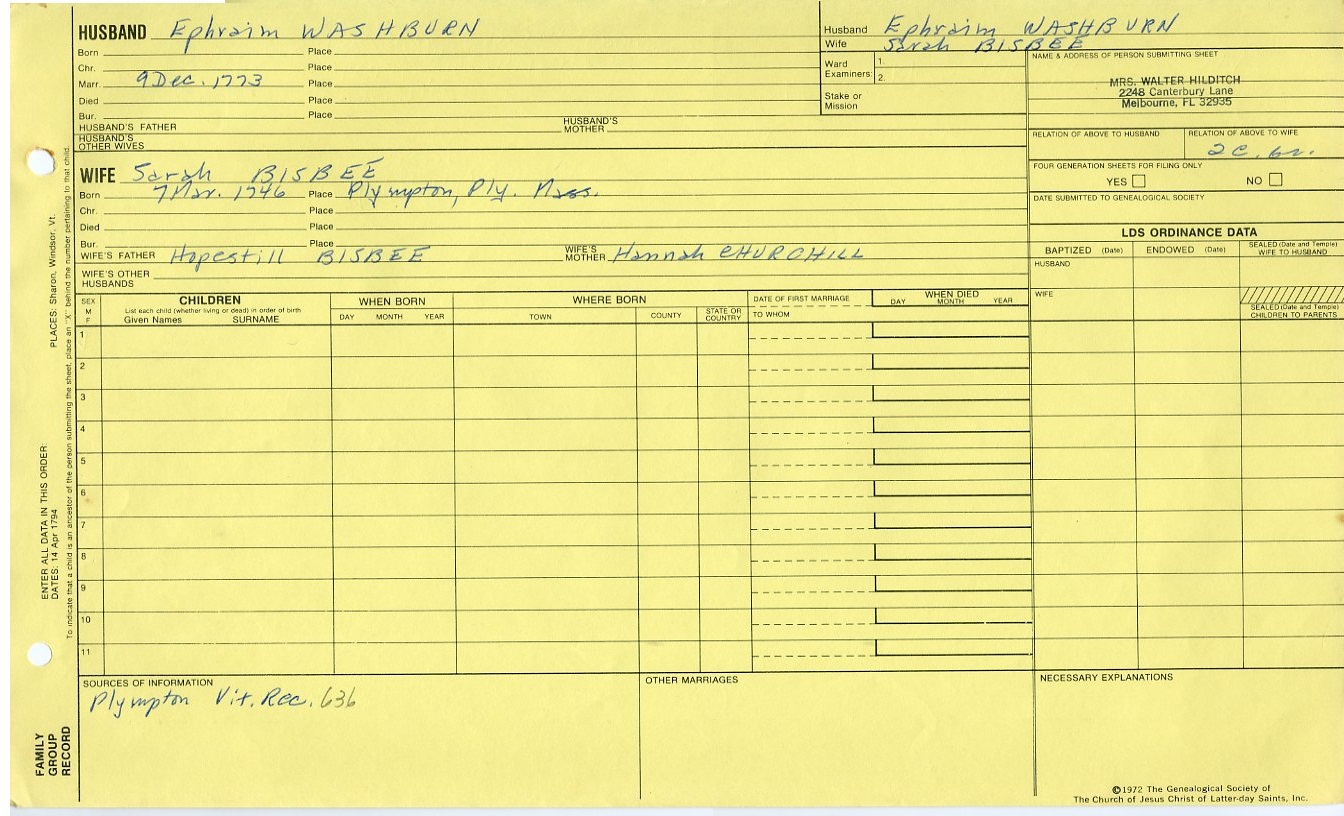 HUSBAND Ephraim WASHBURN
Born Place
Chr. Place
Marr. 9 Dec. 1773 Place
Died Place
Bur. Place
HUSBAND'S FATHER HUSBAND'S MOTHER
HUSBAND'S OTHER WIVES
Husband Ephraim WASHBURN
Wife Sarah BISBEE
Ward Examiners: 1.
2.
Stake or Mission
NAME & ADDRESS OF PERSON SUBMITTING SHEET
MRS. WALTER HILDITCH
2248 Canterbury Lane
Melbourne, FL 32935
RELATION OF ABOVE TO HUSBAND RELATION OF ABOVE TO WIFE
2C. 6r.
FOUR GENERATION SHEETS FOR FILING ONLY
YES NO
DATE SUBMITTED TO GENEALOGICAL SOCIETY
WIFE Sarah BISBEE
Born 7 Mar. 1746 Place Plympton, Ply. Mass.
Chr. Place
Died Place
Bur. Place
WIFE'S FATHER Hopestill BISBEE WIFE'S MOTHER Hannah CHURCHILL
WIFE'S OTHER HUSBANDS
LDS ORDINANCE DATA
BAPTIZED (Date) ENDOWED (Date) SEALED (Date and Temple) WIFE TO HUSBAND
HUSBAND
WIFE
SEALED (Date and Temple) CHILDREN TO PARENTS
SEX M F
CHILDREN
List each child (whether living or dead) in order of birth
Given Names SURNAME
WHEN BORN
DAY MONTH YEAR
WHERE BORN
TOWN COUNTY STATE OR COUNTRY
DATE OF FIRST MARRIAGE
TO WHOM
WHEN DIED
DAY MONTH YEAR
1
2
3
4
5
6
7
8
9
10
11
SOURCES OF INFORMATION
Plympton Vit. Rec. 636
OTHER MARRIAGES
NECESSARY EXPLANATIONS
©1972 The Genealogical Society of
The Church of Jesus Christ of Latter-day Saints, Inc.
FAMILY GROUP RECORD
ENTER ALL DATA IN THIS ORDER:
DATES: 14 Apr 1794 PLACES: Sharon, Windsor, Vt.
To indicate that a child is an ancestor of the person submitting the sheet, place an "X" behind the number pertaining to that child.